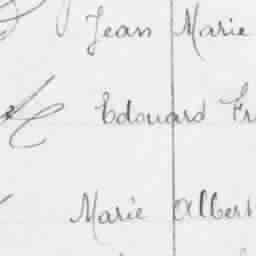 Jean Marie
Edouard Fr
Marie Albert